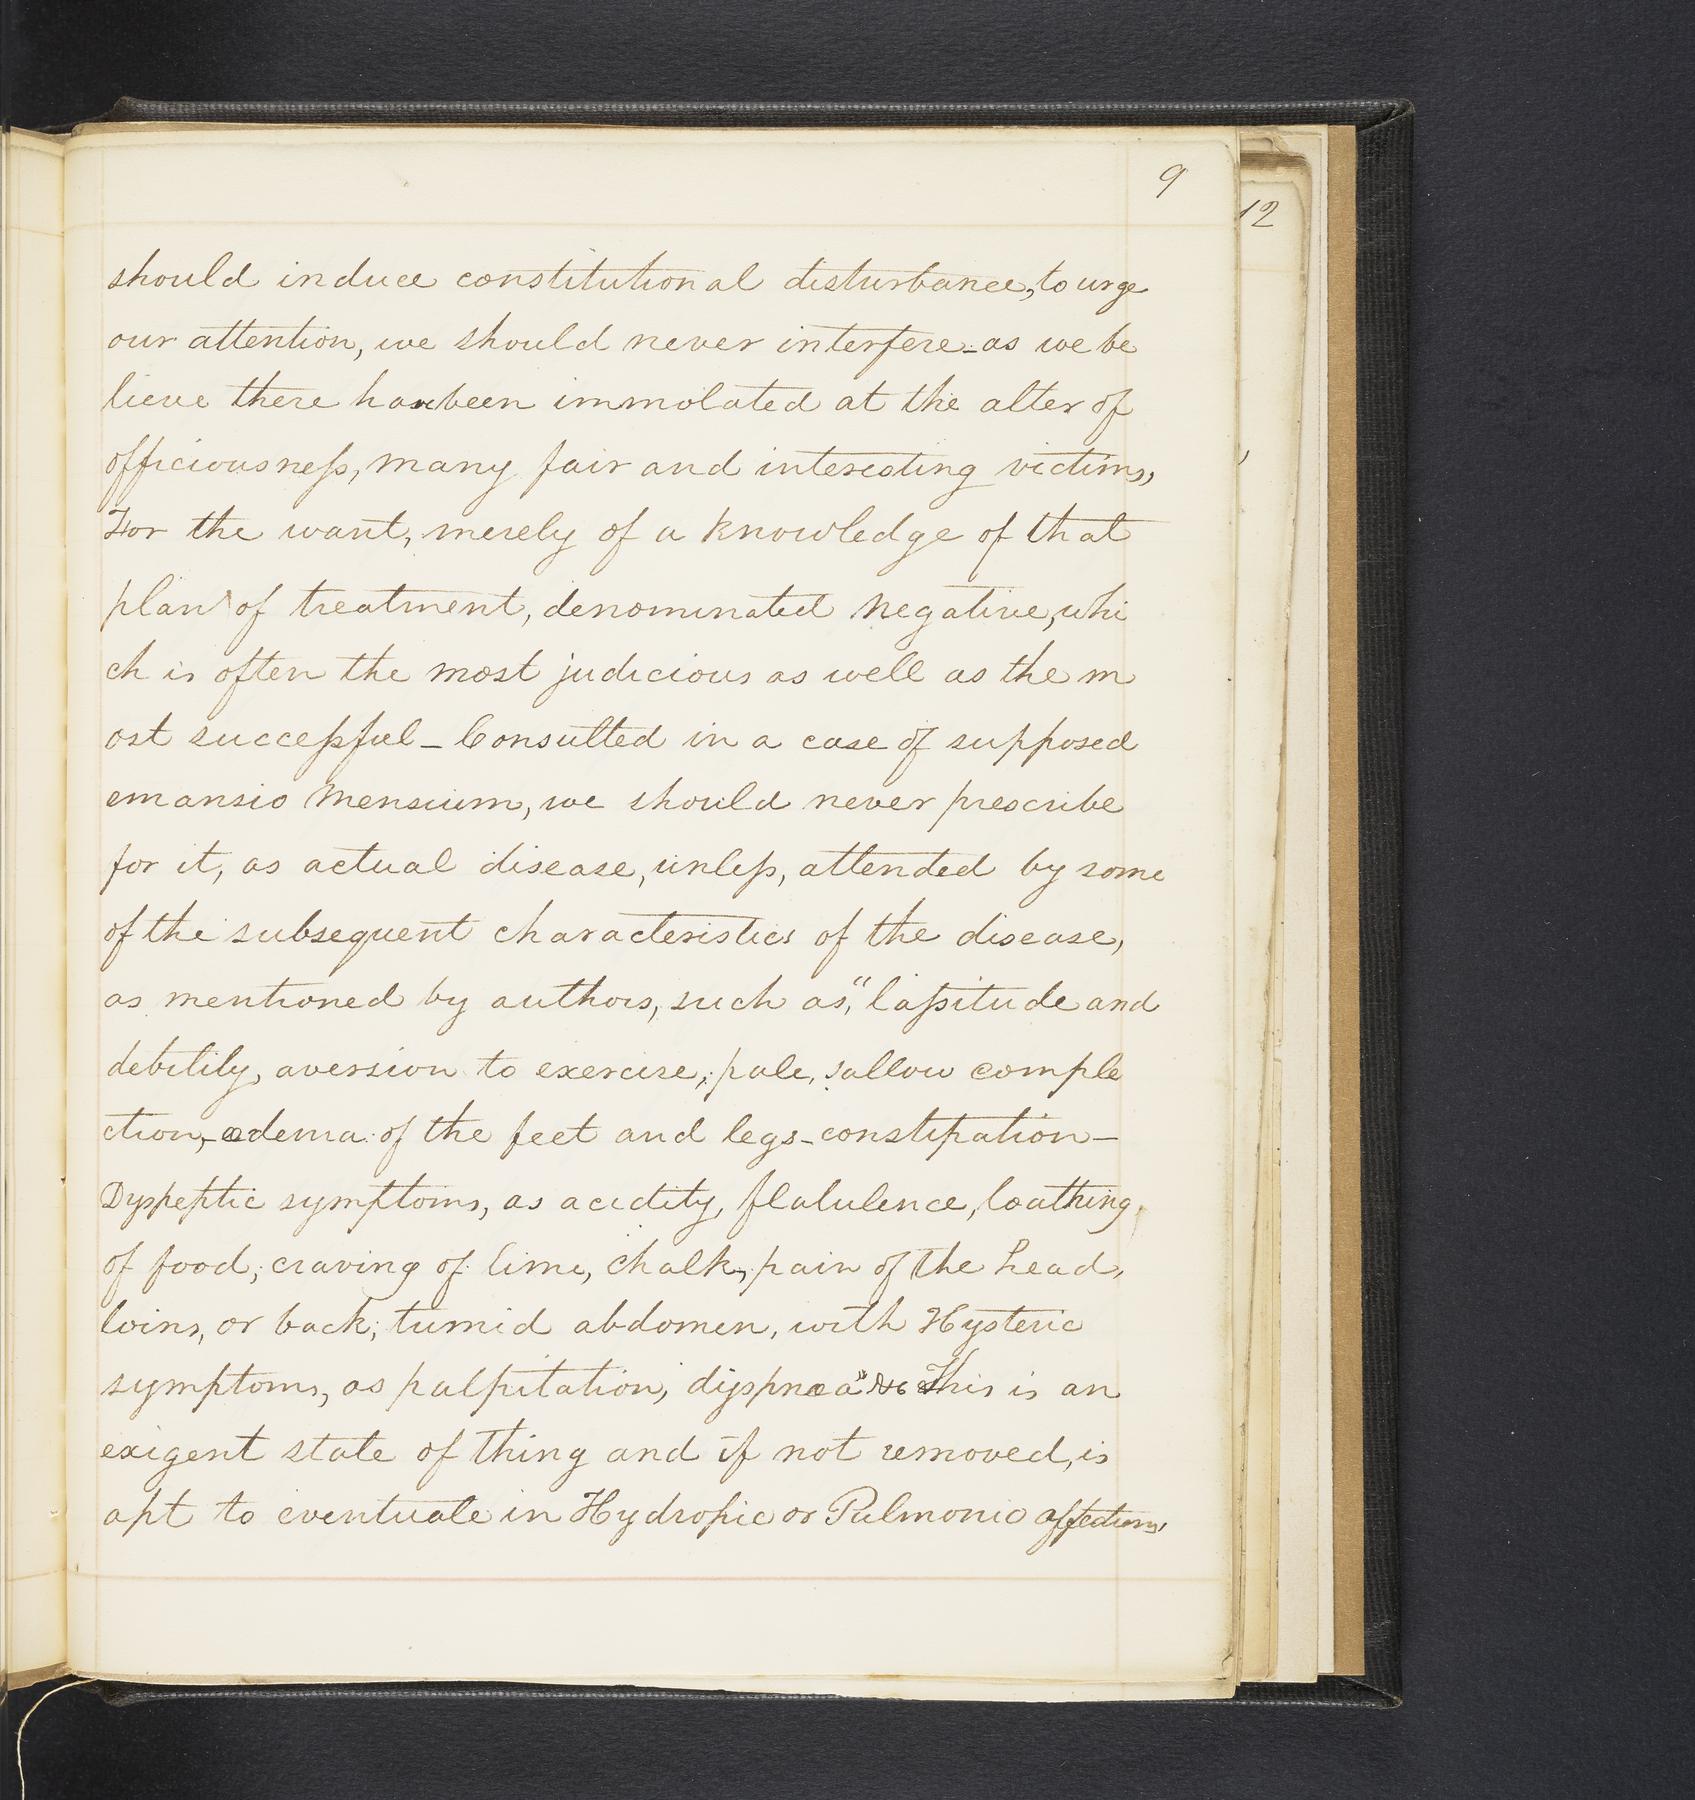 9
12
should induce constitutional disturbance, to urge
our attention, we should never interfere - as we be
lieve there have been immolated at the alter of
officiousneſs, many fair and interesting victims,
For the want, merely of a knowledge of that
plan of treatment, denominated negative, whi
ch is often the most judicious as well as the m
ost succeſsful - Consulted in a case of supposed
emansio mensium, we should never prescribe
for it, as actual disease, unleſs, attended by some
of the subsequent characteristics of the disease,
as mentioned by authors, such as, "laſsitude and
debility, aversion to exercise, pale, sallow comple
ction, - œdema of the feet and legs - constipation -
Dyspeptic symptoms, as acidity, flatulence, loathing
of food; craving of lime, chalk, pain of the head,
loins, or back; tumid abdomen, with Hysteric
symptoms, as palpitation, dyspnœa" &c This is an
exigent state of thing and if not removed, is
apt to eventuate in Hydropic or Pulmonic affections,